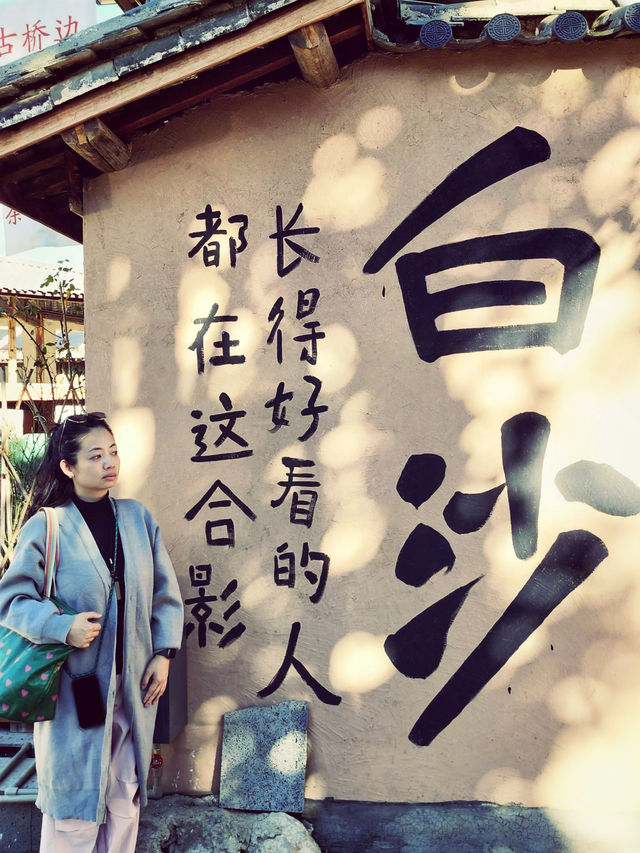 白沙
长得好看的人
都在这合影
古桥边